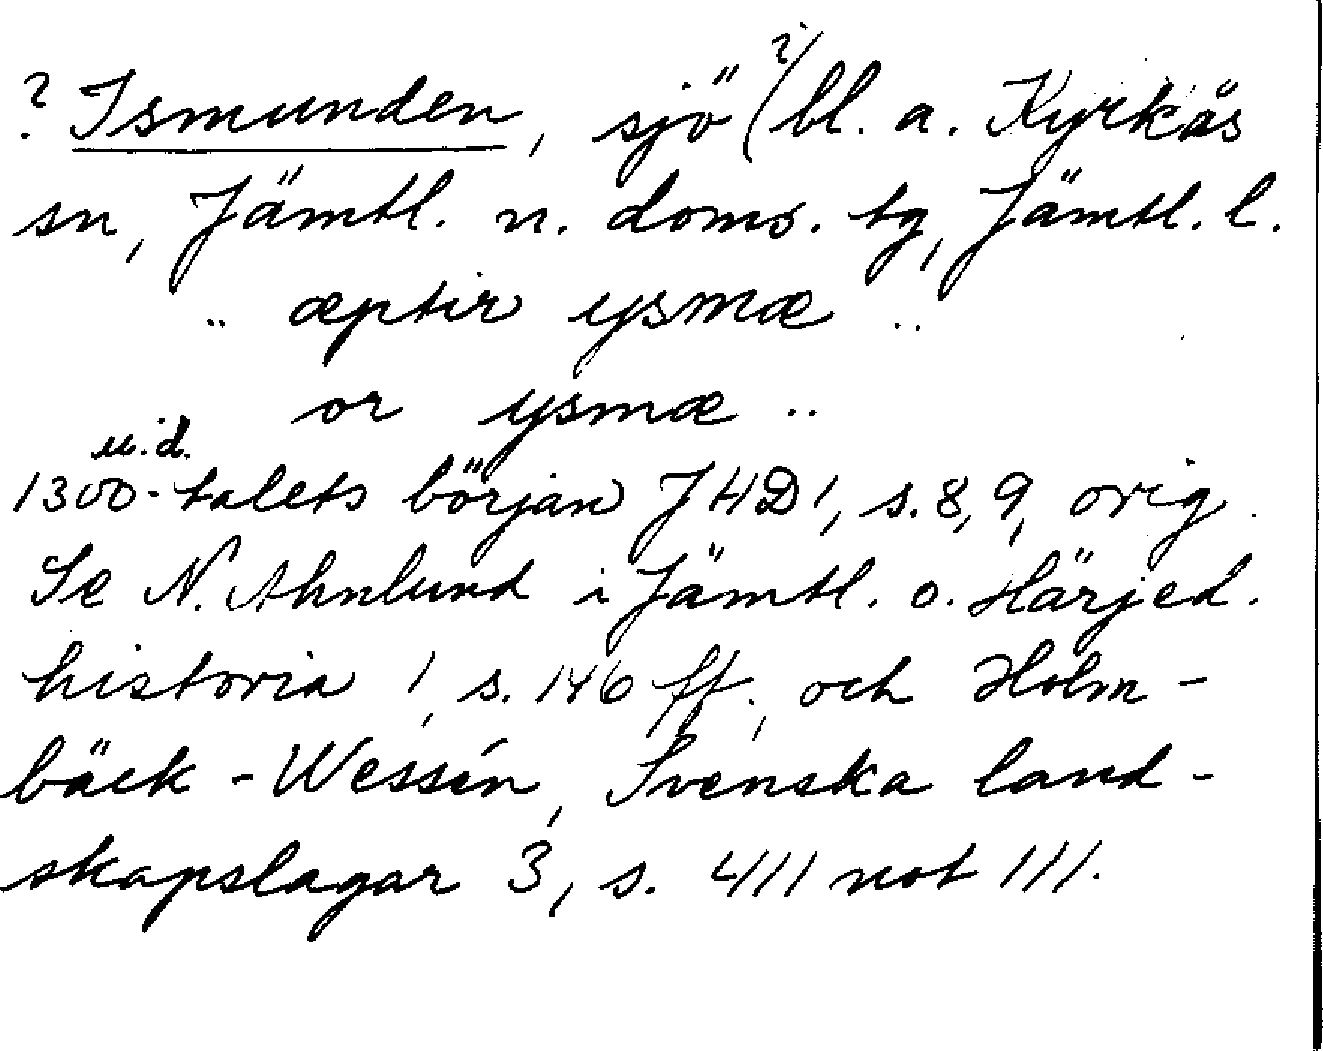 ?/
? Ismunden, sjö (bl. a. Kyrkås
sn, Jämtl. n. doms. tg, Jämtl. l.
.. æptir ysmæ ..
.. or ysmæ ..
u.d.
1300-talets början JHD 1, s. 8, 9, orig.
Se N. Ahnlund i Jämtl. o. Härjed.
historia 1, s. 146 ff., och Holm-
bäck-Wessén, Svenska land-
skapslagar 3, s. 411 not 111.